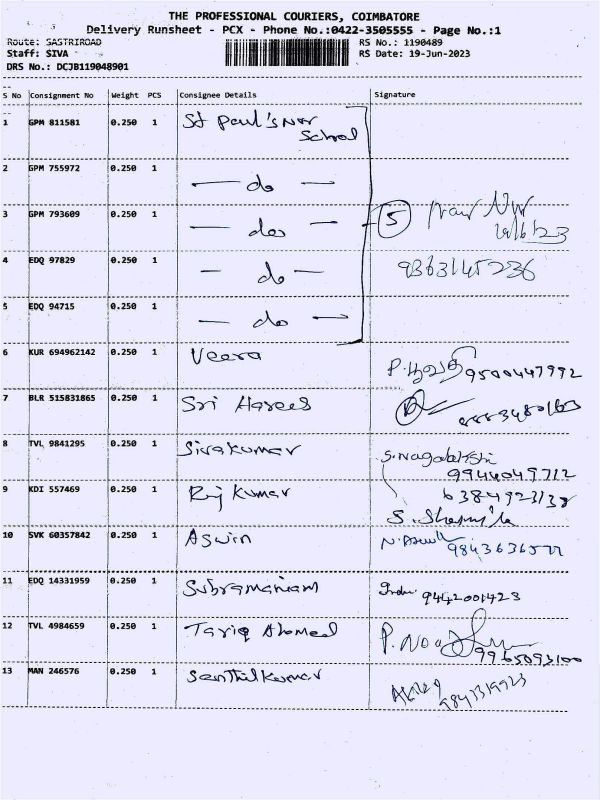 THE PROFESSIONAL COURIERS, COIMBATORE
Delivery Runsheet - PCX - Phone No.:0422-3505555 - Page No.:1
Route: SASTRIROAD
Staff: SIVA
DRS No.: DCJB119048901
RS No.: 1190489
RS Date: 19-Jun-2023
S No Consignment No Weight PCS Consignee Details Signature
1 GPM 811581 0.250 1 St Paul's Nur School
2 GPM 755972 0.250 1 — do —
3 GPM 793609 0.250 1 — do — 5 19/6/23
4 EDQ 97829 0.250 1 — do — 9363145236
5 EDQ 94715 0.250 1 — do —
6 KUR 694962142 0.250 1 Veera 9500447992
7 BLR 515831865 0.250 1 Sri Harees
8 TVL 9841295 0.250 1 Sivakumar S. Nagalakshi 9944049712
9 KDI 557469 0.250 1 Raj Kumar 6384923138
S. Sharmila
10 SVK 60357842 0.250 1 Aswin
11 EDQ 14331959 0.250 1 Subramaniam 9442001423
12 TVL 4984659 0.250 1 Tariq Ahamed 9965093100
13 MAN 246576 0.250 1 Senthilkumar